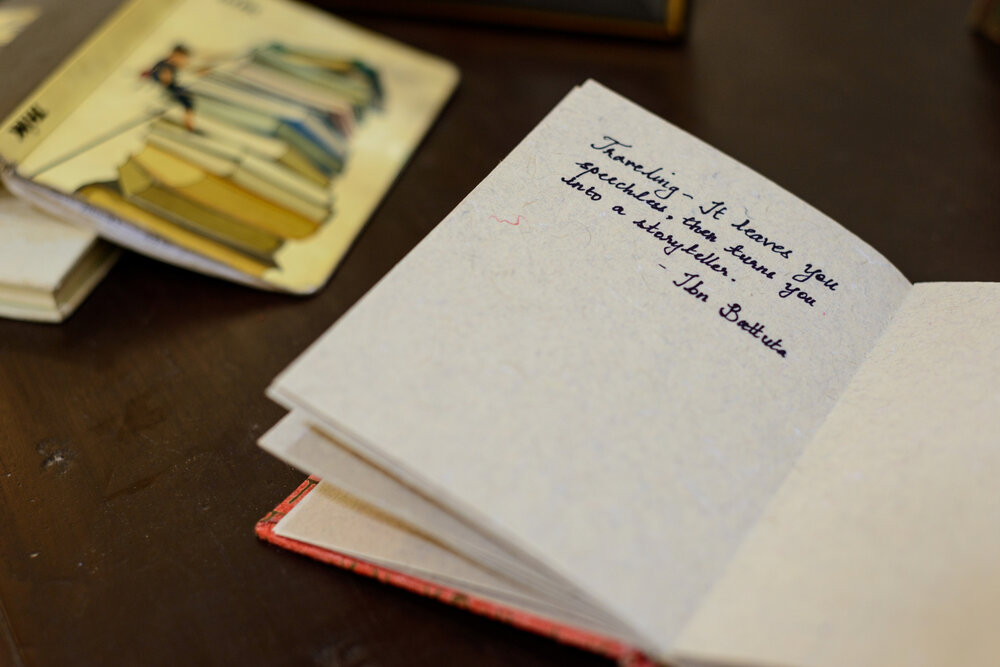 Traveling - It leaves you
speechless, then turns you
into a storyteller.
- Ibn Battuta